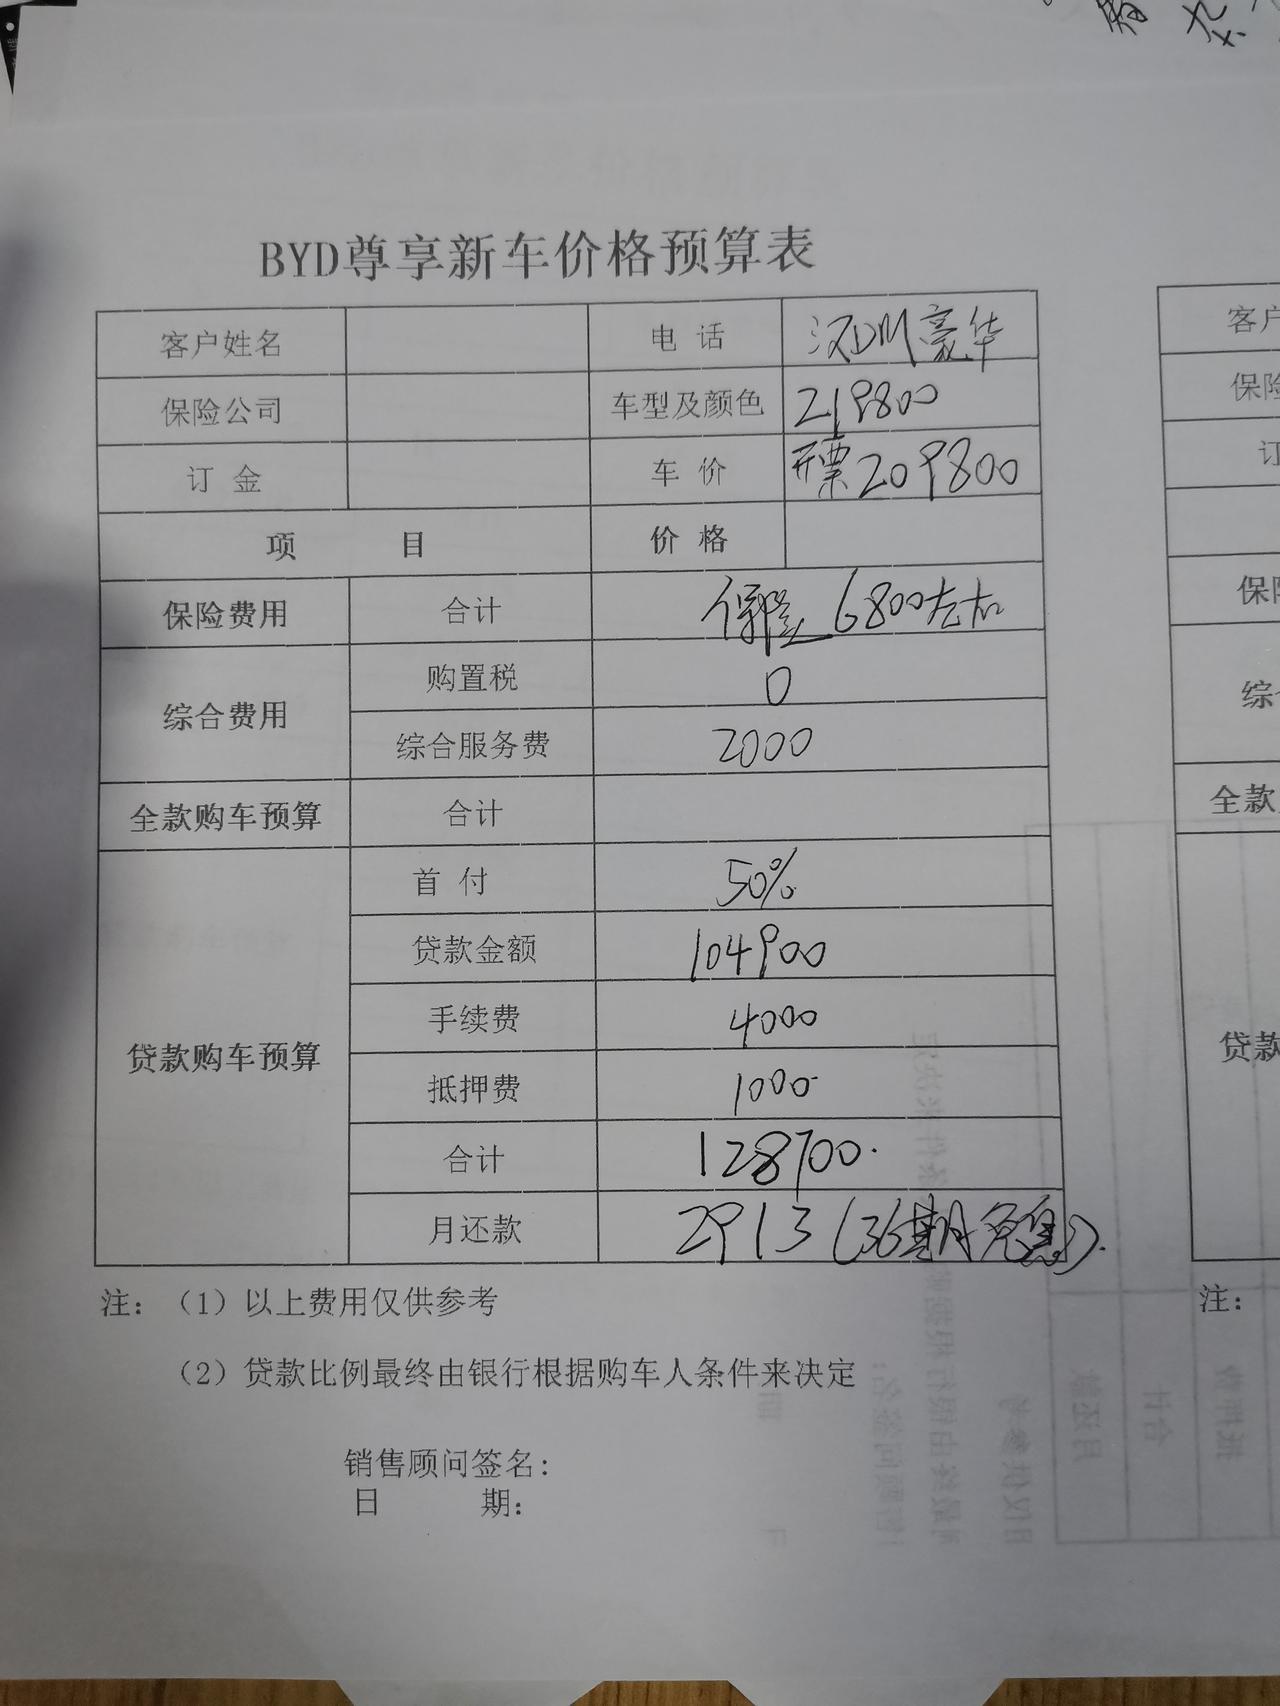 BYD尊享新车价格预算表
客户姓名 电 话 汉DM豪华
保险公司 车型及颜色 219800
订 金 车 价 开票209800
项 目 价 格
保险费用 合计 保险 6800左右
综合费用 购置税 0
综合服务费 2000
全款购车预算 合计
贷款购车预算 首 付 50%
贷款金额 104900
手续费 4000
抵押费 1000
合计 128700.
月还款 2913(36期免息).
注：（1）以上费用仅供参考
（2）贷款比例最终由银行根据购车人条件来决定
销售顾问签名：
日 期：
客户
保险
订
保险
综合
全款
贷款
注：